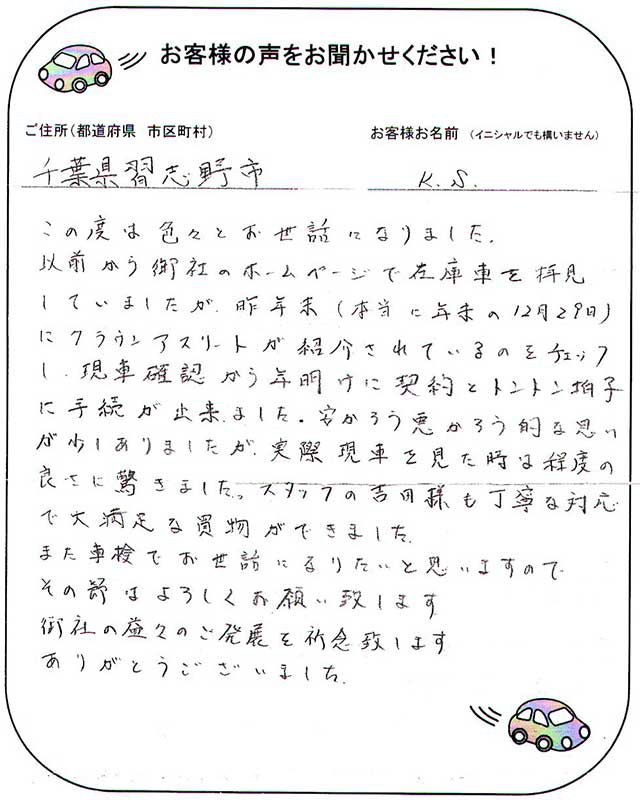 お客様の声をお聞かせください！
ご住所(都道府県 市区町村)
お客様お名前 (イニシャルでも構いません)
千葉県習志野市
K.S.
この度は色々とお世話になりました。
以前から御社のホームページで在庫車を拝見
していましたが、昨年末(本当に年末の12月29日)
にクラウンアスリートが紹介されているのをチェック
し、現車確認から年明けに契約とトントン拍子
に手続が出来ました。安かろう悪かろう的な思い
が少しありましたが、実際現車を見た時は程度の
良さに驚きました。スタッフの吉田様も丁寧な対応
で大満足な買物ができました。
また車検でお世話になりたいと思いますので
その節はよろしくお願い致します
御社の益々のご発展を祈念致します
ありがとうございました。